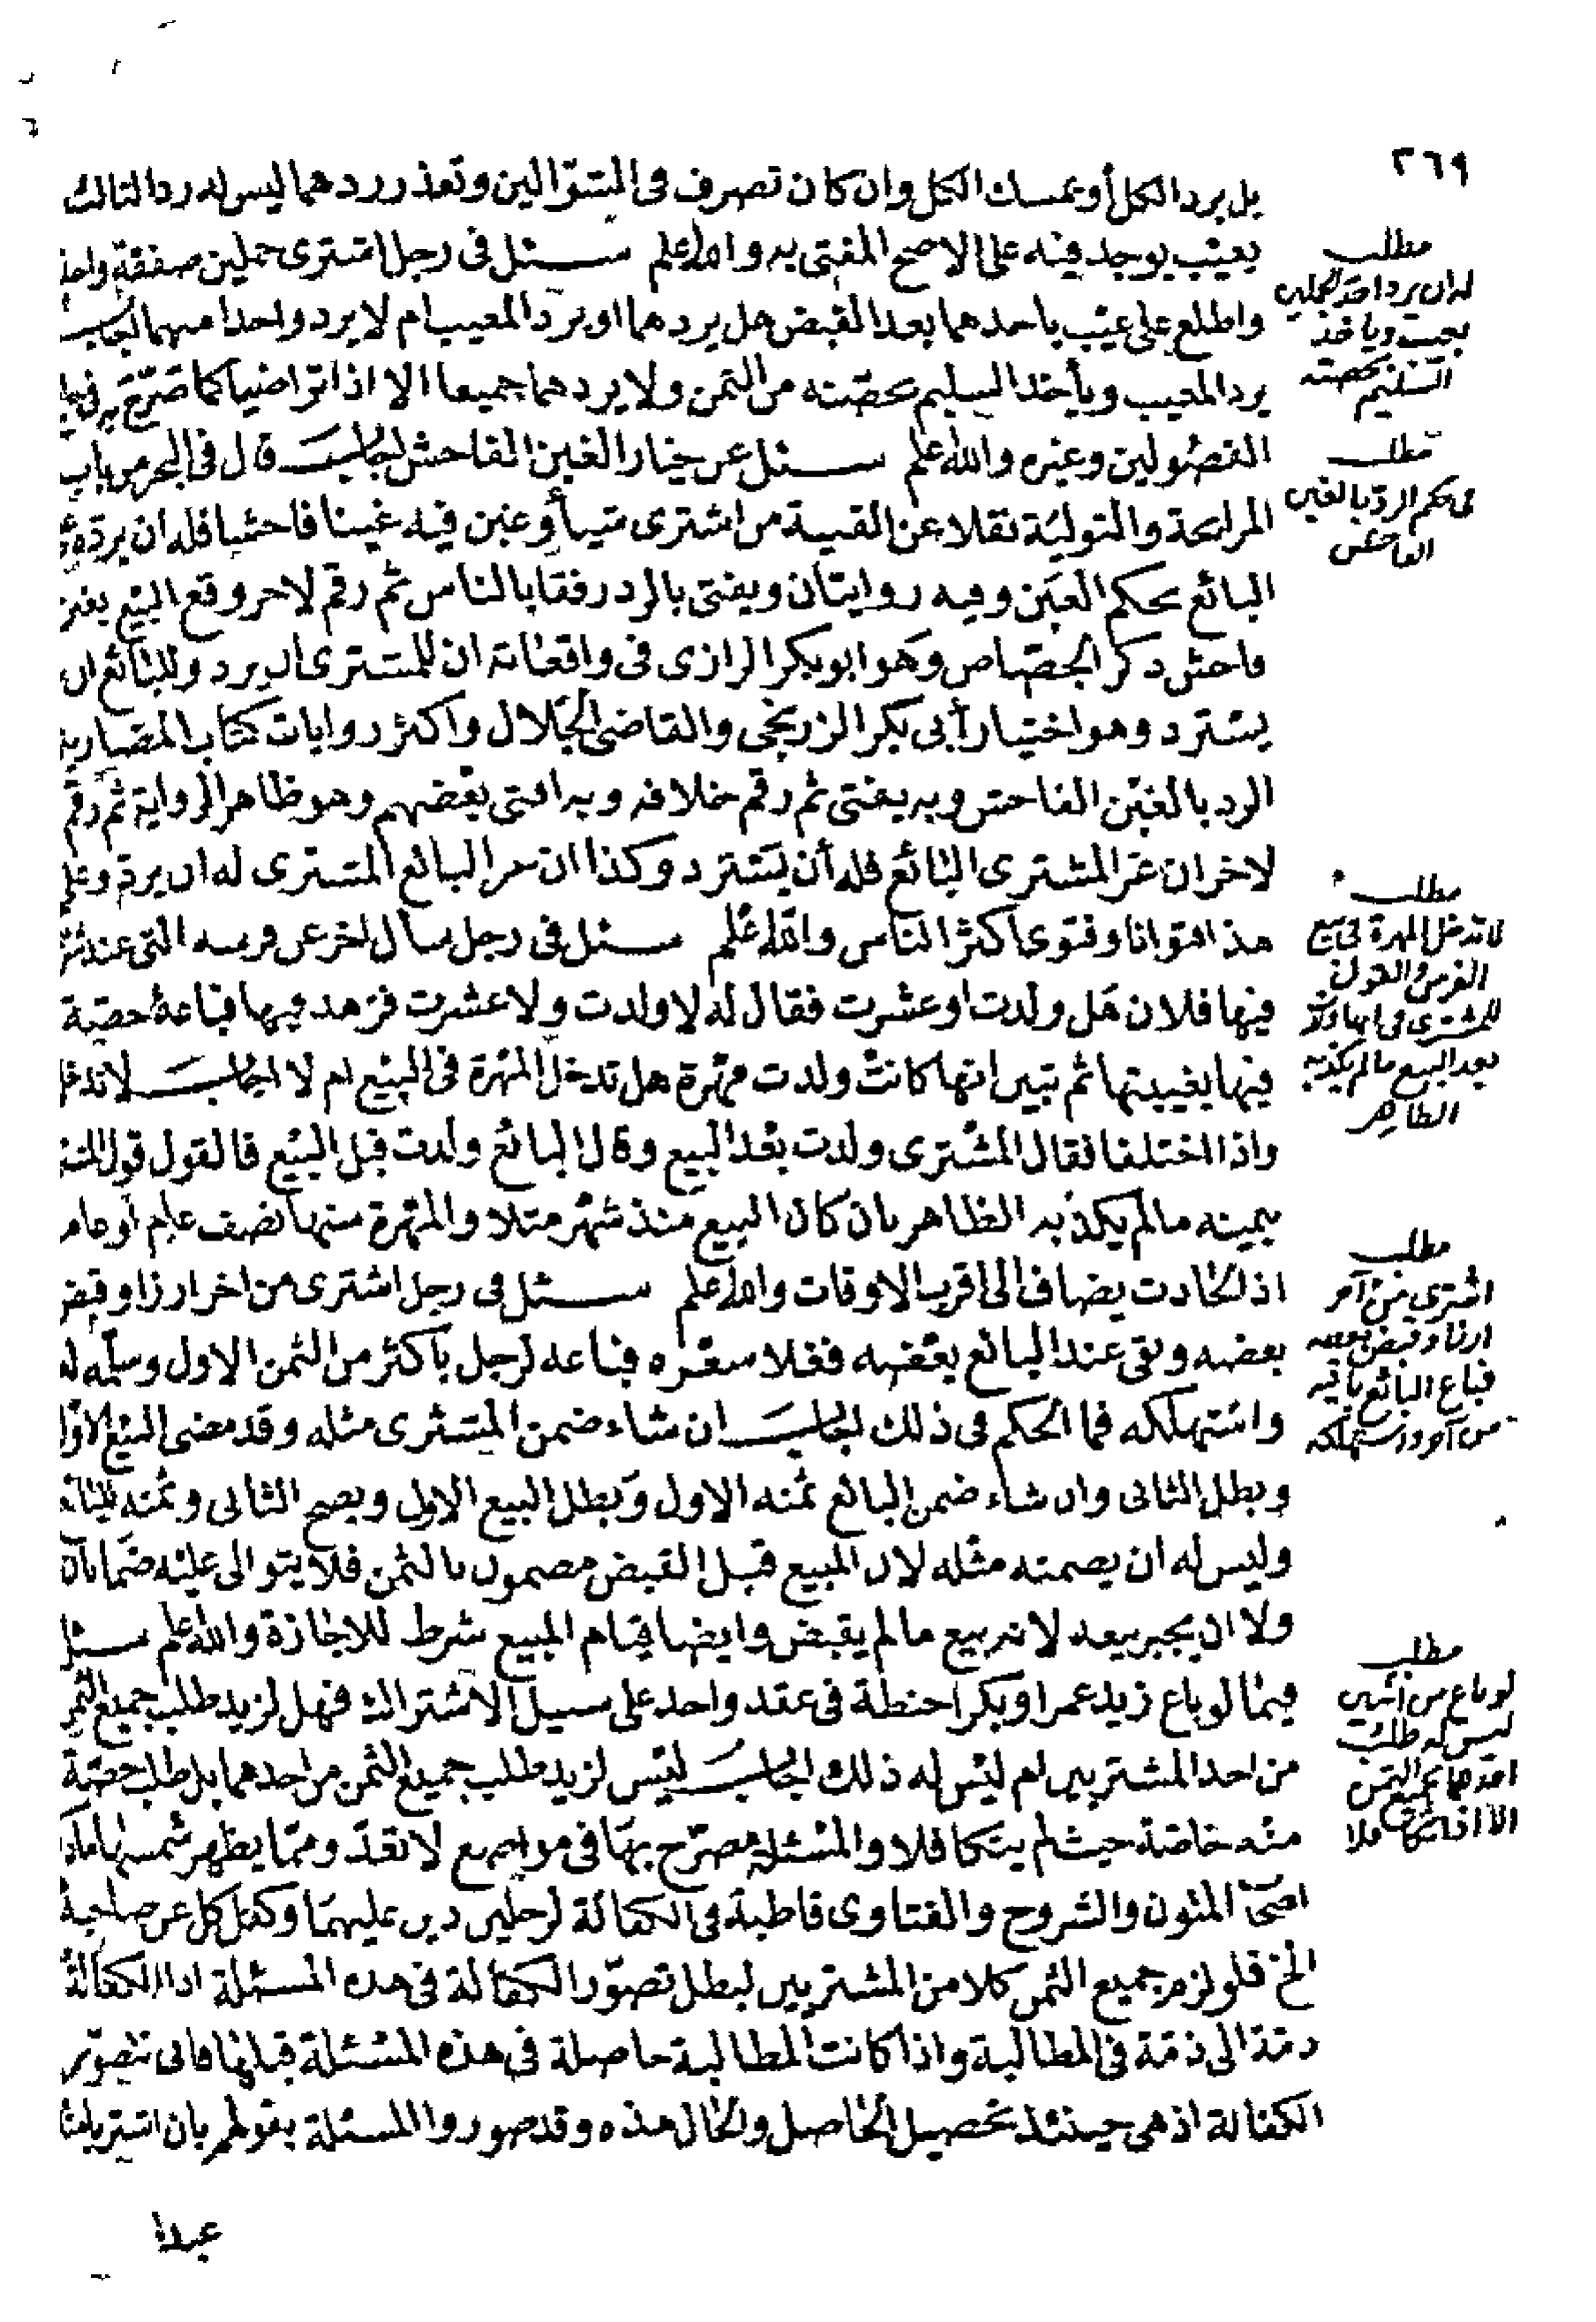 ٢٦٩
بل يرد الكل أو يمسك الكل وان كان تصرف فى الستوالين وتعذر ردهما ليس له رد الثالث
بعيب يوجد فيه على الاصح المفتى به والله اعلم سئل فى رجل اشترى حملين صفقة واحدة
واطلع على عيب باحدهما بعد القبض هل يردهما او يرد المعيب ام لا يرد واحدا منهما اجاب
يرد المعيب ويأخذ السليم بحصته من الثمن ولا يردهما جميعا الا اذا تراضيا كما صرّح به فى جامع
الفصولين وغيره والله اعلم سئل عن خيار الغبن الفاحش اجاب قال فى البحر من باب
المرابحة والتولية نقلا عن القنية من اشترى شيأ وغبن فيه غبنا فاحشا فله ان يرده على
البائع بحكم الغبن وفيه روايتان ويفتى بالرد رفقا بالناس ثم رقم لاخر وقع البيع بغبن
فاحش ذكر الجصاص وهو ابو بكر الرازى فى واقعاته ان للمشترى ان يرد وللبائع ان
يسترد وهو اختيار أبى بكر الزرنجى والقاضى الجلال واكثر روايات كتاب المضاربة
الرد بالغبن الفاحش وبه يفتى ثم رقم خلافه وبه افتى بعضهم وهو ظاهر الرواية ثم رقم
لاخر ان غر المشترى البائع فله أن يسترد وكذا ان غر البائع المشترى له ان يرد وعلى
هذا فتوانا وفتوى أكثر الناس والله اعلم سئل فى رجل سأل اخر عن فرسه التى عند شريكه
فيها فلان هل ولدت او عشرت فقال له لا ولدت ولا عشرت فزهد فيها فباعه حصته
فيها بغيبتها ثم تبين انها كانت ولدت مهرة هل تدخل المهرة فى البيع ام لا اجاب لا تدخل
واذا اختلفا فقال المشترى ولدت بعد البيع وقال البائع ولدت قبل البيع فالقول قول المشترى
بيمينه ما لم يكذبه الظاهر بان كان البيع منذ شهر مثلا والمهرة سنها نصف عام أو عام
اذ الحادث يضاف الى اقرب الاوقات والله اعلم سئل فى رجل اشترى من اخر ارزا وقبض
بعضه وبقى عند البائع بعضه فغلا سعره فباعه لرجل بأكثر من الثمن الاول وسلمه له
واستهلكه فما الحكم فى ذلك اجاب ان شاء ضمن المشترى مثله وقد مضى البيع الاول
وبطل الثانى وان شاء ضمن البائع ثمنه الاول وبطل البيع الاول ويصح الثانى وثمنه للبائع
وليس له ان يضمنه مثله لان المبيع قبل القبض مضمون بالثمن فلا يتوالى عليه ضمانان
ولا ان يجيز بيعه لانه بيع ما لم يقبض وايضا قيام المبيع شرط للاجازة والله اعلم سئل
فيما لو باع زيد عمرا وبكرا حنطة فى عقد واحد على سبيل الاشتراك فهل لزيد طلب جميع الثمن
من احد المشتريين ام ليس له ذلك اجاب ليس لزيد طلب جميع الثمن من احدهما بل طلب حصته
منه خاصة حيث لم يتكافلا والمسئلة مصرّح بها فى مواضع لا تعد ومما يظهر شمسها ما ذكره
اصحاب المتون والشروح والفتاوى قاطبة فى الكفالة لرجلين دين عليهما وكفل كل عن صاحبه
الخ فلو لزم جميع الثمن كلا من المشتريين لبطل تصوّر الكفالة فى هذه المسئلة اذ الكفالة ضم
ذمة الى ذمة فى المطالبة واذا كانت المطالبة حاصلة فى هذه المسئلة قبلها فانى تتصوّر
الكفالة اذ هى حينئذ تحصيل الحاصل والحال هذه وقد صوروا المسئلة بقولهم بان اشتريا منه
عبدا
مطلب
له ان يرد احد الحملين
بعيب وياخذ
السليم بحصته
مطلب
فى حكم الرد بالغبن
الفاحش
مطلب
لا تدخل المهرة فى بيع
الفرس والقول
للمشترى فى انها ولدت
بعد البيع ما لم يكذبه
الظاهر
مطلب
اشترى من آخر
ارزا وقبض بعضه
فباع البائع باقيه
من آخر واستهلكه
مطلب
لو باع من اثنين
ليس له طلب
احدهما بجميع الثمن
الا اذا تكافلا